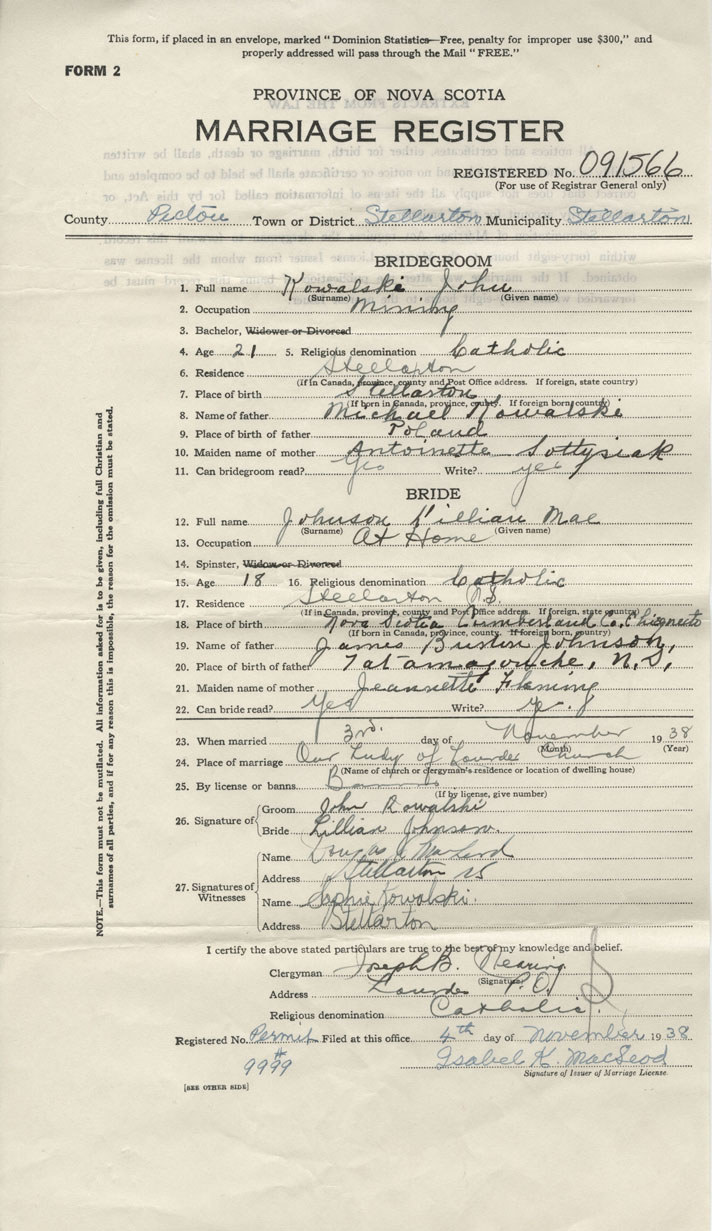 This form, if placed in an envelope, marked "Dominion Statistics—Free, penalty for improper use $300," and
properly addressed will pass through the Mail "FREE."
FORM 2
PROVINCE OF NOVA SCOTIA
MARRIAGE REGISTER
REGISTERED No. 091566
(For use of Registrar General only)
County Pictou Town or District Stellarton Municipality Stellarton
BRIDEGROOM
1. Full name Kowalski John
(Surname) (Given name)
2. Occupation Mining
3. Bachelor, Widower or Divorced
4. Age 21 5. Religious denomination Catholic
6. Residence Stellarton
(If in Canada, province, county and Post Office address. If foreign, state country)
7. Place of birth Stellarton
(If born in Canada, province, county. If foreign born, country)
8. Name of father Michael Kowalski
9. Place of birth of father Poland
10. Maiden name of mother Antoinette Sottysiak
11. Can bridegroom read? Yes Write? yes
BRIDE
12. Full name Johnson Lillian Mae
(Surname) (Given name)
13. Occupation At Home
14. Spinster, Widow or Divorced
15. Age 18 16. Religious denomination Catholic
17. Residence Stellarton N.S.
(If in Canada, province, county and Post Office address. If foreign, state country)
18. Place of birth Nova Scotia Cumberland Co. Chignecto
(If born in Canada, province, county. If foreign born, country)
19. Name of father James Burton Johnson,
20. Place of birth of father Tatamagouche, N.S,
21. Maiden name of mother Jeannette Fleming
22. Can bride read? Yes Write? yes
23. When married 3rd. day of November 1938
(Month) (Year)
24. Place of marriage Our Lady of Lourdes Church
(Name of church or clergyman's residence or location of dwelling house)
25. By license or banns
(If by license, give number)
26. Signature of
Groom John Kowalski
Bride Lillian Johnson.
27. Signatures of Witnesses
Name Douglas
Address Stellarton NS
Name Sophie Kowalski.
Address Stellarton
I certify the above stated particulars are true to the best of my knowledge and belief.
Clergyman Joseph B. Nearing
(Signature)
Address Lourdes P.O.
Religious denomination Catholic.
Registered No. Permit Filed at this office 4th day of November 1938
#9999
Isabel K. MacLeod
Signature of Issuer of Marriage License.
[SEE OTHER SIDE]
NOTE.—This form must not be mutilated. All information asked for is to be given, including full Christian and
surnames of all parties, and if for any reason this is impossible, the reason for the omission must be stated.